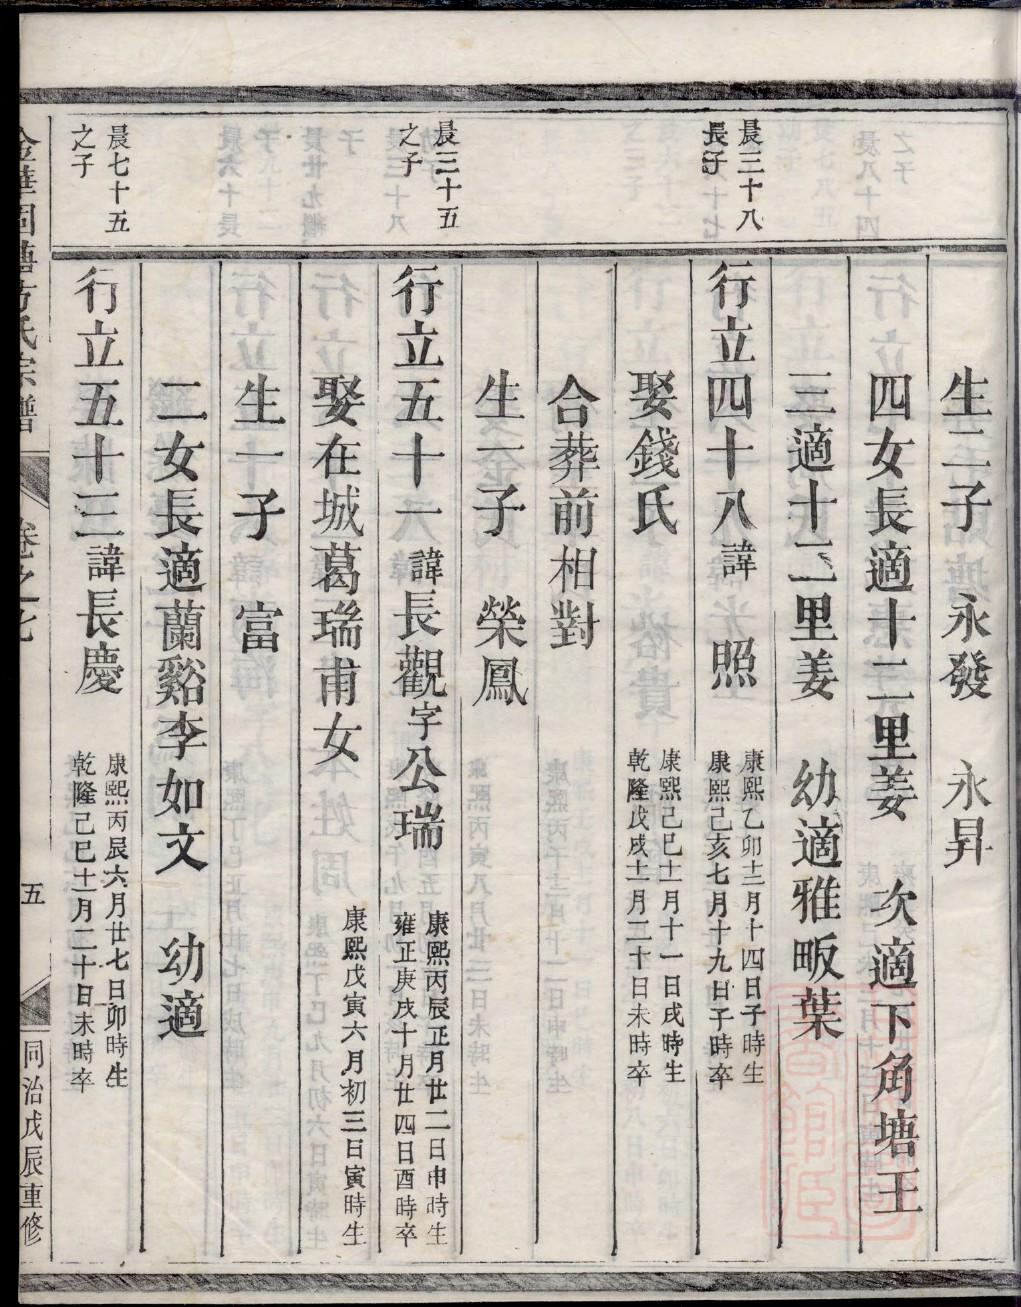 生二子　永發　永昇
四女長適十二里姜　次適下角塘王
三適十二里姜　幼適雅畈葉
晨三十八
長子
行立四十八諱照
康熙乙卯十二月十四日子時生
康熙己亥七月十九日子時卒
娶錢氏
康熙己巳十一月十一日戌時生
乾隆戊戌十一月二十日未時卒
合葬前相對
生二子　榮鳳
晨三十五
之子
行立五十一諱長觀字公瑞
康熙丙辰正月廿二日申時生
雍正庚戌十月廿四日酉時卒
娶在城葛瑞甫女
康熙戊寅六月初三日寅時生
生一子　富
二女長適蘭谿李如文　幼適
晨七十五
之子
行立五十三諱長慶
康熙丙辰六月廿七日卯時生
乾隆己巳十一月二十日未時卒
卷之七
五
同治戊辰重修